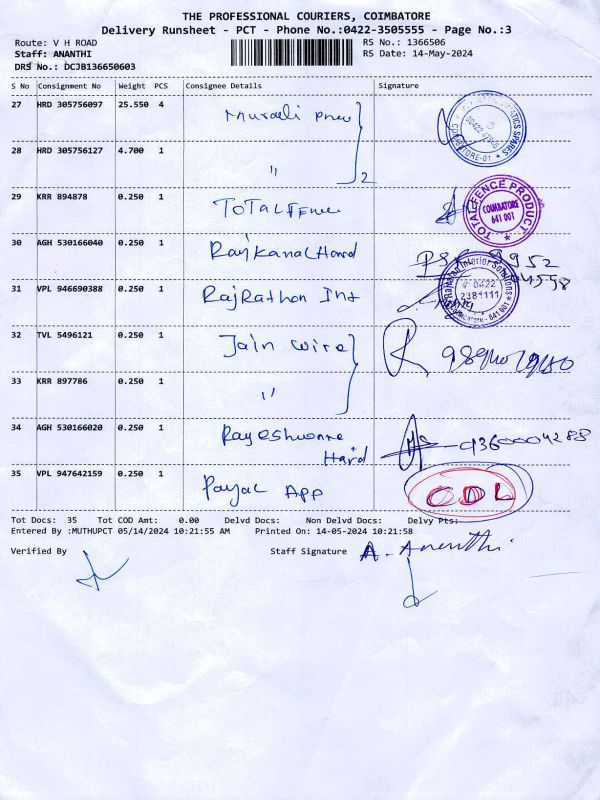 THE PROFESSIONAL COURIERS, COIMBATORE
Delivery Runsheet - PCT - Phone No.:0422-3505555 - Page No.:3
Route: V H ROAD
RS No.: 1366506
Staff: ANANTHI
RS Date: 14-May-2024
DRS No.: DCJB136650603
S No Consignment No Weight PCS Consignee Details Signature
27 HRD 305756097 25.550 4 Murali
28 HRD 305756127 4.700 1 " 2
29 KRR 894878 0.250 1 TOTAL Fence
TOTAL FENCE PRODUCT COIMBATORE 641 001
30 AGH 530166040 0.250 1
31 VPL 946690388 0.250 1 RajRathon Int
32 TVL 5496121 0.250 1 Jain wire
33 KRR 897786 0.250 1 "
34 AGH 530166020 0.250 1 Hard 9360004288
35 VPL 947642159 0.250 1 Payal APP ODL
Tot Docs: 35 Tot COD Amt: 0.00 Delvd Docs: Non Delvd Docs: Delvy Pts:
Entered By :MUTHUPCT 05/14/2024 10:21:55 AM Printed On: 14-05-2024 10:21:58
Verified By Staff Signature A. Ananthi